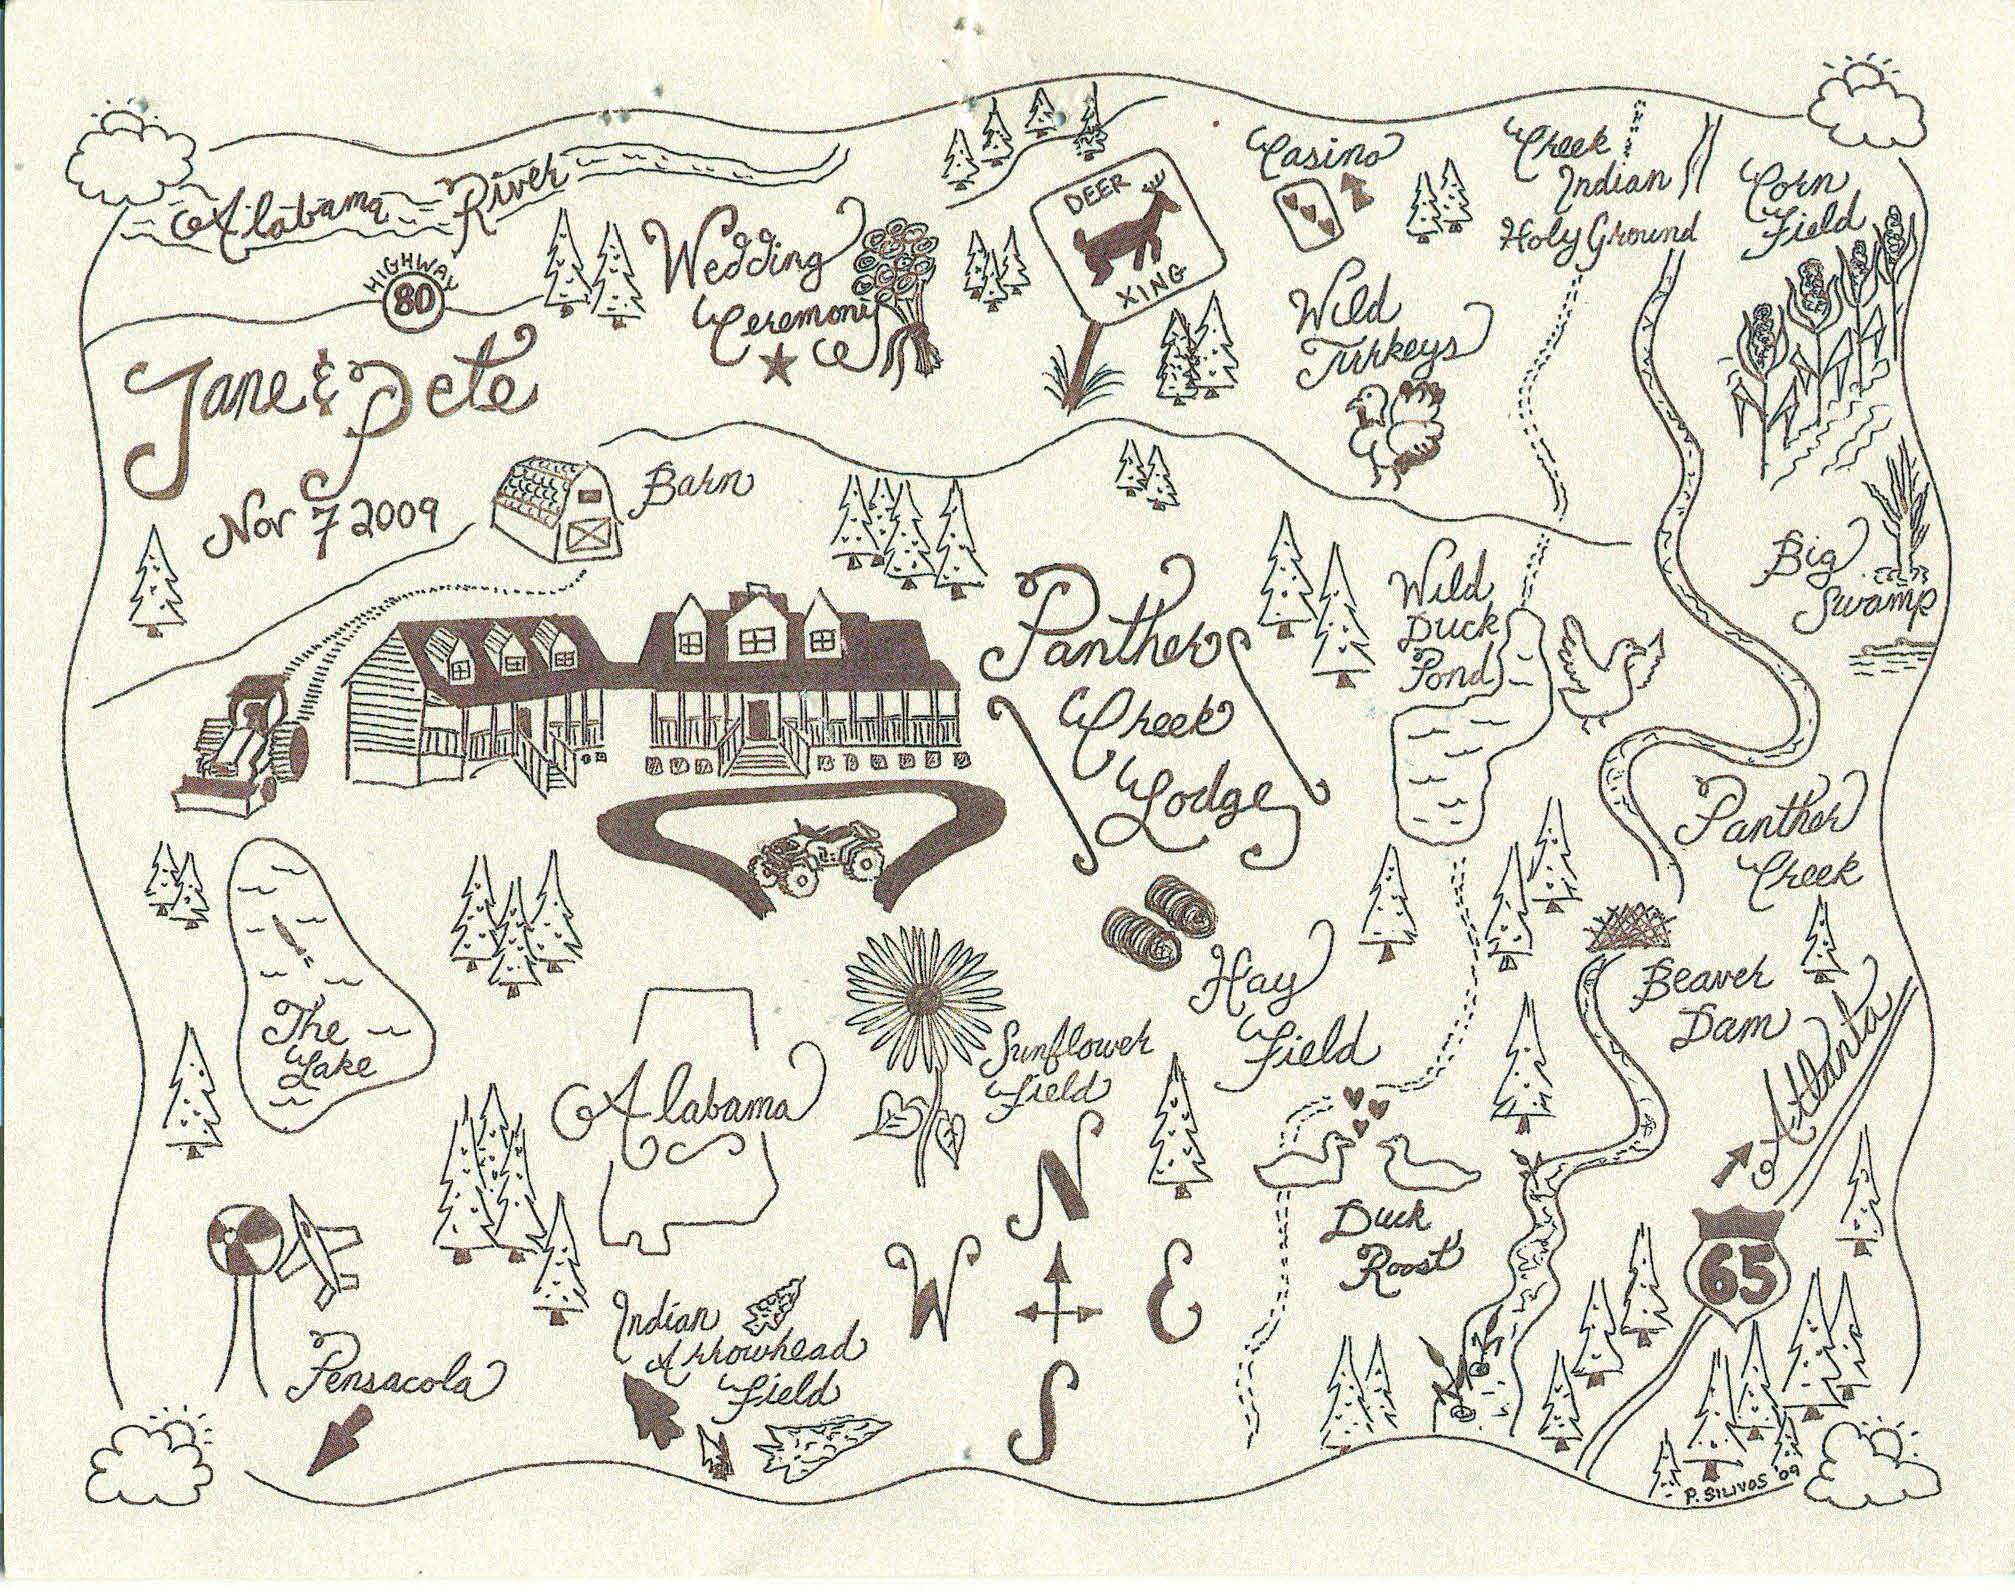 Alabama River
HIGHWAY
80
Wedding
Ceremony
DEER
XING
Casino
Creek
Indian
Holy Ground
Corn
Field
Wild
Turkeys
Jane & Pete
Nov 7 2009
Barn
Big
Swamp
Panther
Creek
Lodge
Wild
Duck
Pond
Panther
Creek
The
Lake
Hay
Field
Beaver
Dam
Atlanta
Sunflower
Field
Alabama
N
W
E
S
Duck
Roost
65
Pensacola
Indian
Arrowhead
Field
P. SILIVOS '09